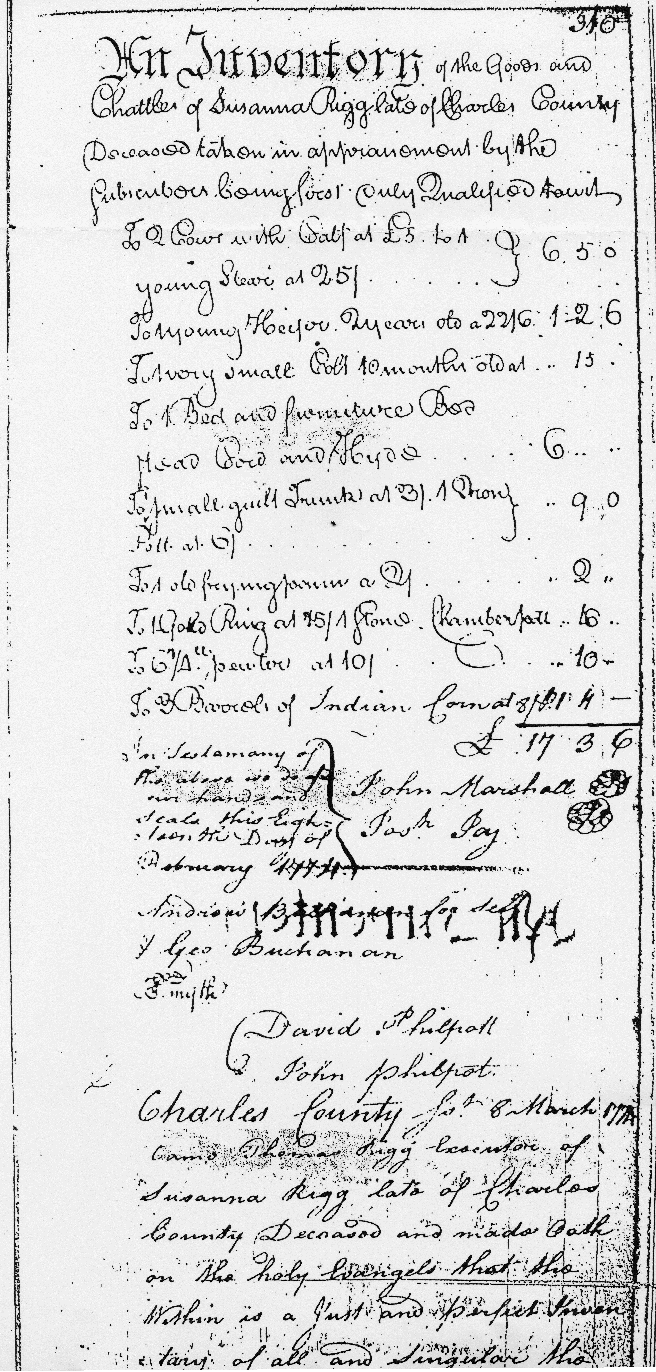 310
An Inventory of the Goods and
Chattles of Susanna Rigg late of Charles County
Deceased taken in appraisement by the
Subscribers being first Duly Qualified towit
To 2 Cows with Calf at £5. to 1
young Stear at 25/ . . . . . } 6. 5 0
To 1 young Heifer 2 years old a 22/6 1-2.6
To 1 very small Colt 10 months old at .. 15 .
To 1 Bed and furniture Bed
stead Cord and Hyde . . . . . 6 .. ..
To 1 small guilt Trunk at 3/. 1 Iron } .. 9 .. 0
Pott at 6/ . . . . . .
To 1 old frying pann a 2/ . . . . . .. 2 ..
To 1 Gold Ring at 15/ 1 Stone Chamber pott .. 16 ..
To 6 3/4 lb pewter at 10/ . . . .. 10 -
To 3 Barrels of Indian Corn at 8/ 1 4 -
£ 17 3 6
In Testamony of
the above we do set
our hands and
seals this Eigh-
teenth Day of
February 1774
John Marshall
Josh Joy
Andrew Buchanan for self
& Geo Buchanan
Smyth
David Philpott
John Philpot
Charles County Sst 8 March 1774
Came Thomas Rigg Executor of
Susanna Rigg late of Charles
County Deceased and made Oath
on the holy Evangels that the
Within is a Just and perfect Inven
tary of all and singular the